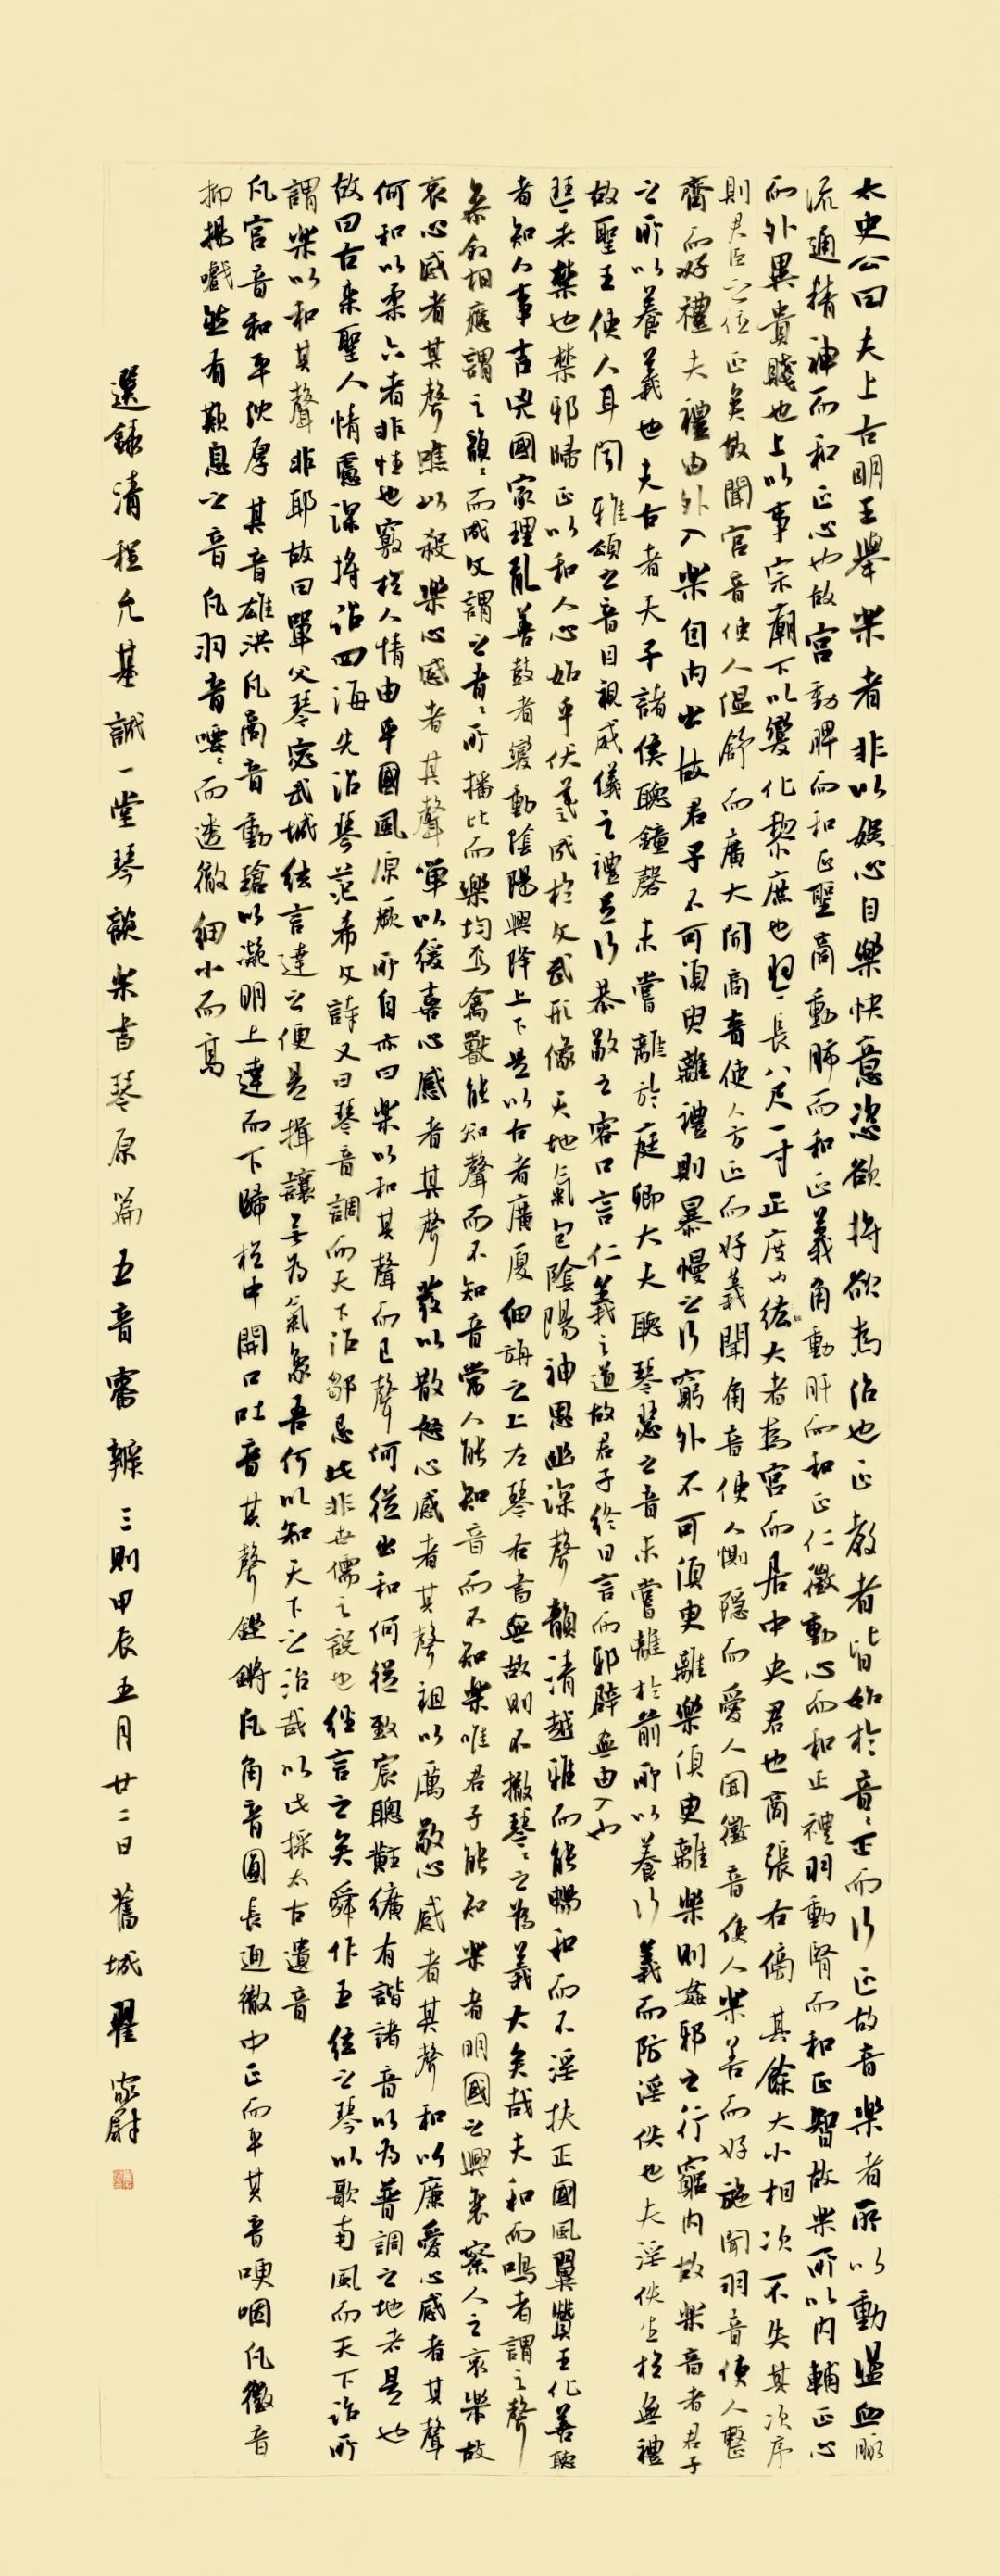 太史公曰夫上古明王舉樂者非以娛心自樂快意恣欲將欲為治也正教者皆始於音〻正而行正故音樂者所以動盪血脈
流通精神而和正心也故宮動脾而和正聖商動肺而和正義角動肝而和正仁徵動心而和正禮羽動腎而和正智故樂所以內輔正心
而外異貴賤也上以事宗廟下以變化黎庶也琴長八尺一寸正度也絃大者為宮而居中央君也商張右傍其餘大小相次不失其次序
則君臣之位正矣故聞宮音使人溫舒而廣大聞商音使人方正而好義聞角音使人惻隱而愛人聞徵音使人樂善而好施聞羽音使人整
齊而好禮夫禮由外入樂自內出故君子不可須臾離禮須臾離禮則暴慢之行窮外不可須臾離樂須臾離樂則姦邪之行窮內故樂音者君子
之所以養義也夫古者天子諸侯聽鐘磬未嘗離於庭卿大夫聽琴瑟之音未嘗離於前所以養行義而防淫佚也夫淫佚生於無禮
故聖王使人耳聞雅頌之音目視威儀之禮足行恭敬之容口言仁義之道故君子終日言而邪辟無由入也
琴者禁也禁邪歸正以和人心始乎伏羲成於文武形像天地氣包陰陽神思幽深聲韻清越雅而能暢和而不淫扶正國風翼贊王化善聽
者知人事吉凶國家理亂善鼓者變動陰陽興降上下是以古者廣廈細旃之上左琴右書無故則不撤琴〻之為義大矣哉夫和而鳴者謂之聲
桑敘相應謂之韻〻而成文謂之音〻所播比而樂均焉禽獸能知聲而不知音常人能知音而不知樂唯君子能知樂者明國之興衰察人之哀樂故
哀心感者其聲噍以殺樂心感者其聲嘽以緩喜心感者其聲發以散怒心感者其聲粗以厲敬心感者其聲和以廉愛心感者其聲
何和以柔六者非性也竅於人情由乎國風原厥所自亦曰樂以和其聲而已聲何從出和何從致宸聰黈纊有諧諸音以為普調之地者是也
故曰古來聖人情慮深將治四海先治琴范希文詩又曰琴音調而天下治鄒忌此非世儒之說也經言之矣舜作五絃之琴以歌南風而天下治所
謂樂以和其聲非耶故曰單父琴宓武城絃言達之便是揖讓無為氣象吾何以知天下之治哉以此採太古遺音
凡宮音和平沈厚其音雄洪凡商音動瑲以凝明上達而下歸於中開口吐音其聲鏗鏘凡角音圓長通徹中正而平其音哽咽凡徵音
抑揚嘅然有歎息之音凡羽音嚶〻而透徹細小而高
選錄清程允基誠一堂琴談樂書琴原篇五音審辨三則甲辰五月廿二日舊城翟家尉